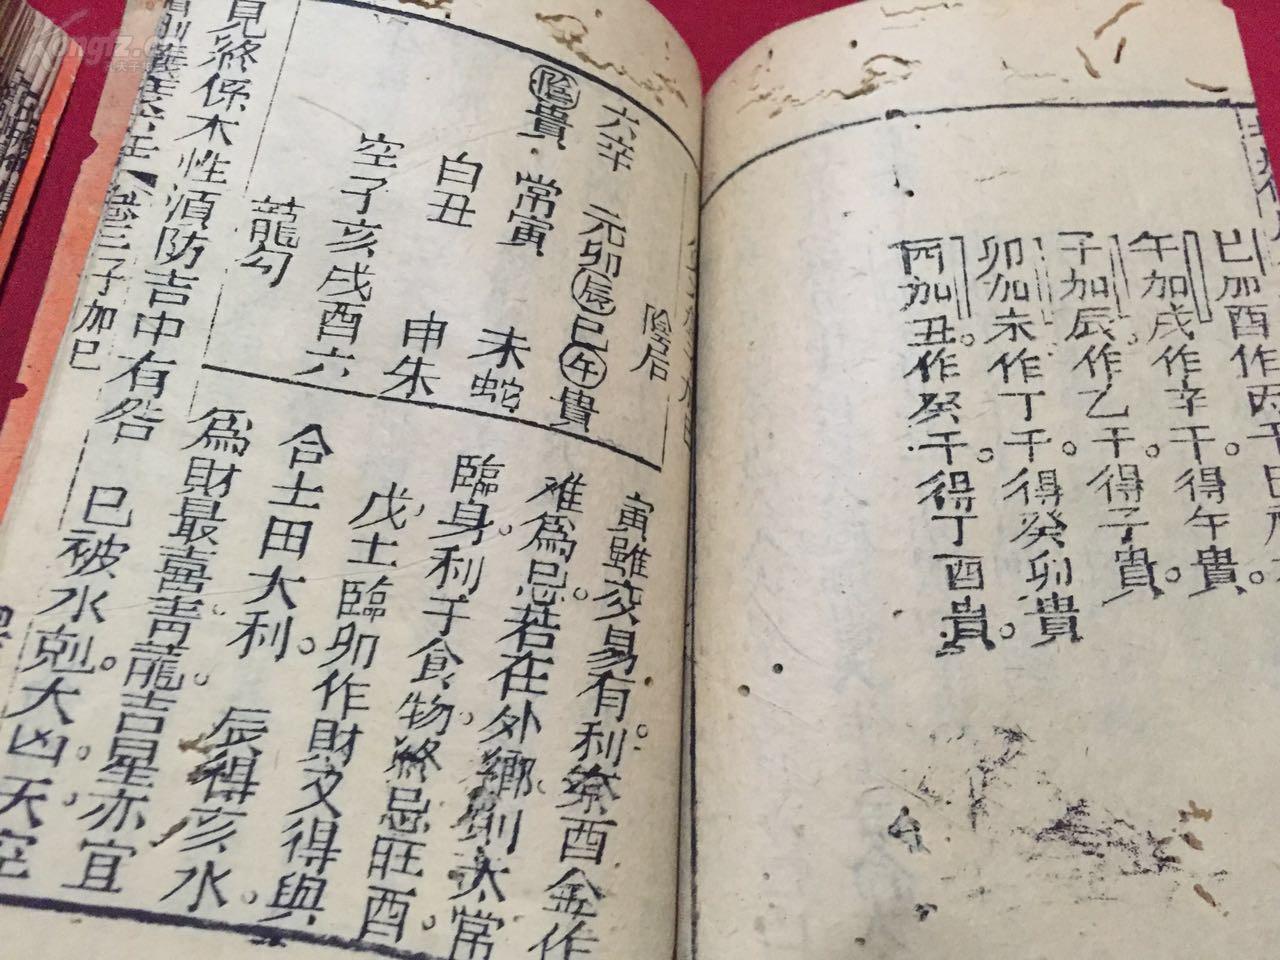 巳加酉作丙干
午加戌作辛干。得午貴。
子加辰作乙干。得子貴。
卯加未作丁干。得癸卯貴
酉加丑。作癸干。得丁酉貴。
陰居
六辛 元卯辰巳午貴
陰貴 常寅 未蛇
白丑 申朱
空子亥戌酉六
龍勾
寅雖亥易有利。奈酉金作
难為忌。若在外鄉。則太常
臨身。利于食物。終忌旺酉。
戊土臨卯作財。又得與
合土田大利。 辰得亥水。
為財最喜。青龍吉星亦宜
巳被水剋。大凶。天空
見終係木性須防吉中有咎
卷三子加巳